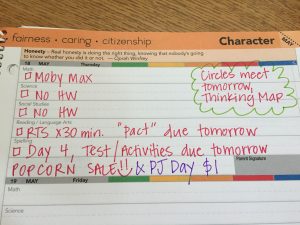 fairness • caring • citizenship Character
Honesty - Real honesty is doing the right thing, knowing that nobody's going
to know whether you did it or not. — Oprah Winfrey
MAY Thursday
Math
Moby max
Circles meet
tomorrow,
Thinking Map
Science
No HW
Social Studies
No HW
Reading / Language Arts
RTS x30 min. "Pact" due tomorrow
Spelling
Day 4, Test/Activities due tomorrow
POPCORN SALE!! & PJ Day $1
Parent Signature
19 MAY Friday
Math
Science